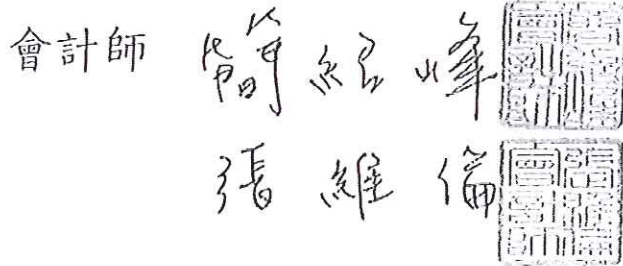 會計師 簡紹峰
張維倫